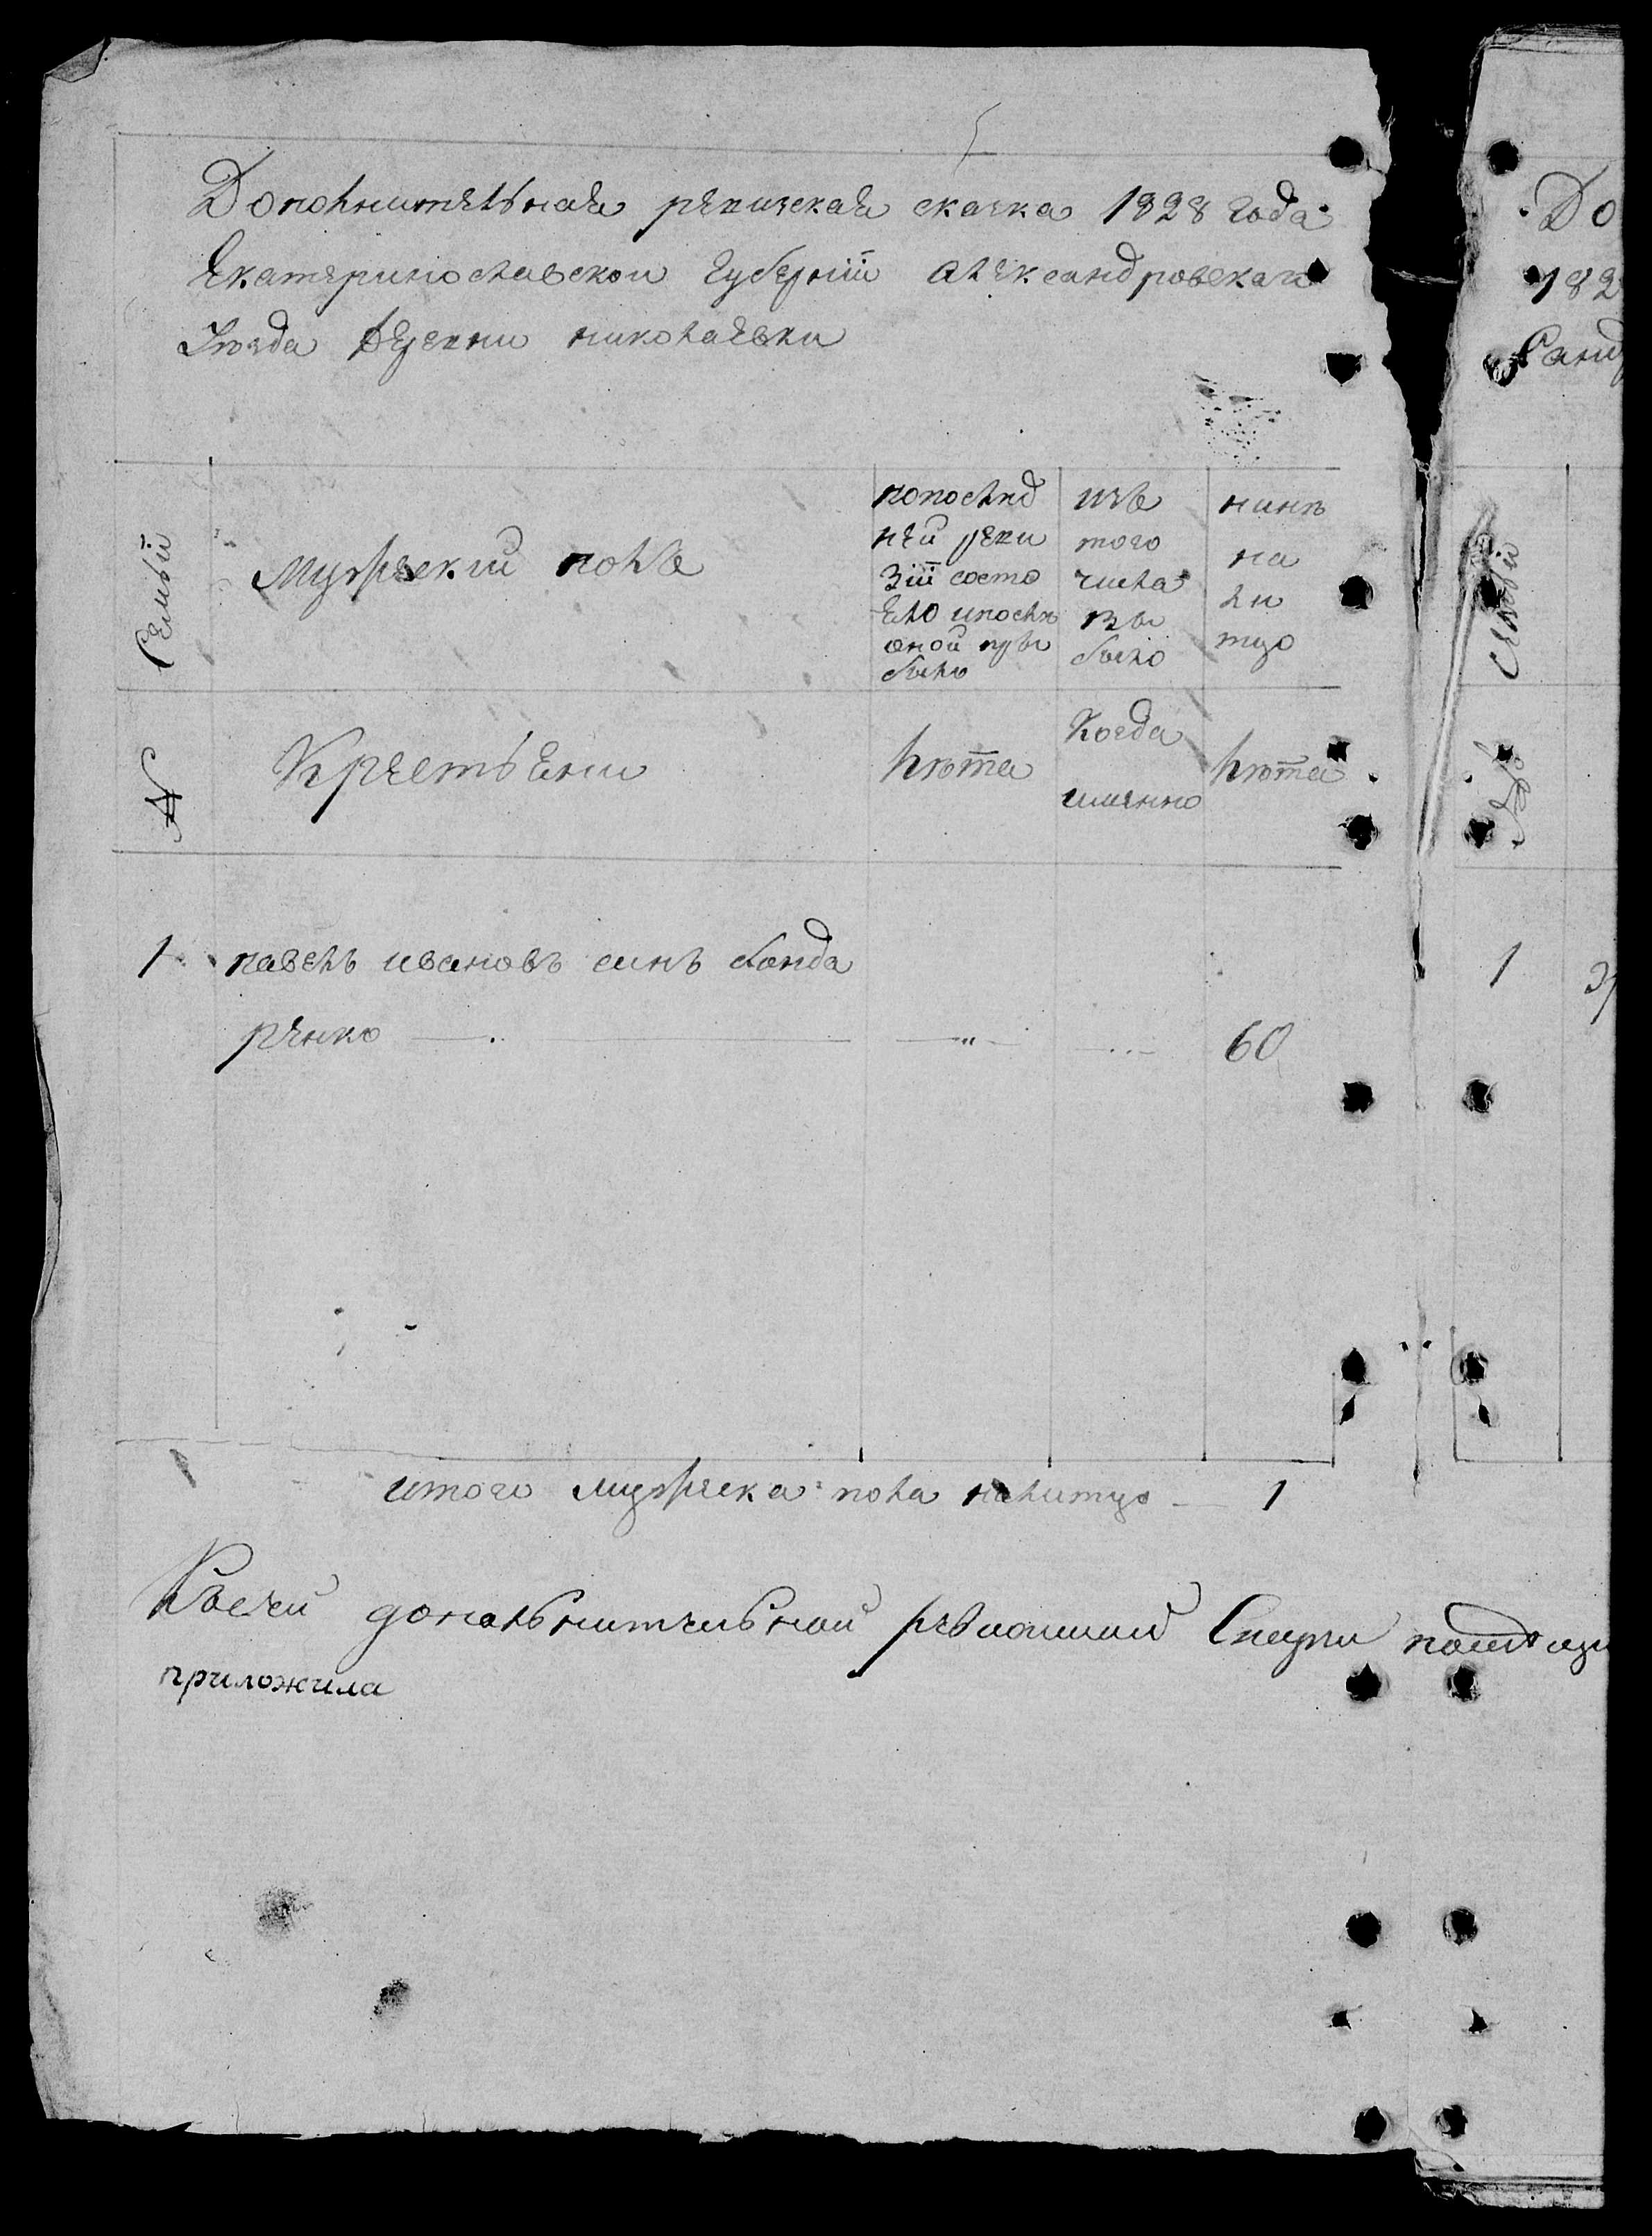 Дополнителѣная ревизская сказка 1828 года
Екатеринославскои Губернїй Александровскаго
Уѣзда Деревни николаевки
Семьй
Мужрескии полъ
попослѣд
ней реви
Зїй состо
Ело ипослѣ
оной прыи
было
изъ
того
числа
вы
было
нинѣ
на
ли
тцо
№
Крестьени
лѣта
Когда
именно
лѣта
1 павелъ ивановъ синъ бонда
ренко 60
итого мужреска пола налитцо 1
Ксеѣй дополнительной
приложила
До
182
Санд
Семьй
№
1